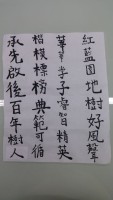 紅藍園地樹好風聲
莘莘學子睿智精英
楷模標榜典範可循
承先啟後百年樹人